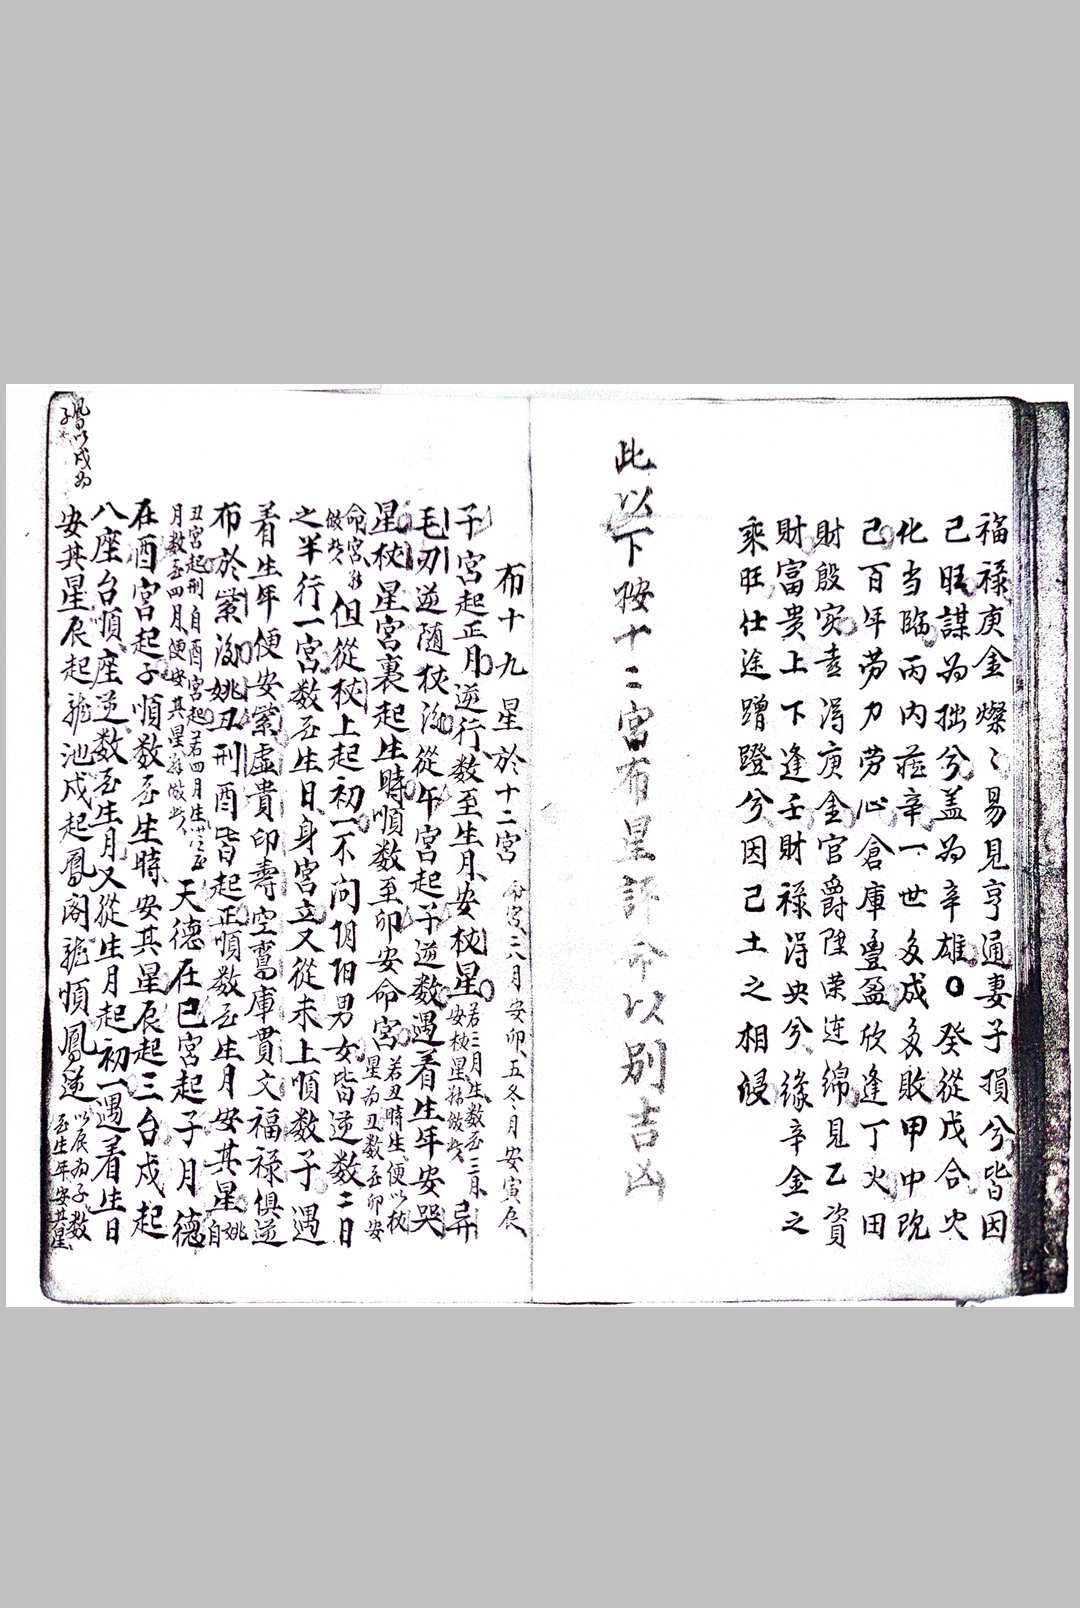 福祿庚金燦〻易見亨通妻子損兮皆因
己旺謀為拙兮盖為辛雄〇癸從戊合火
化当臨丙內 辛一世多成多敗甲中
己百年劳力劳心倉庫豊盈欣逢丁火田
財殷实 淂庚金官爵陞荣连綿見乙資
財富贵上下逢壬財禄淂央兮缘辛金之
乘旺仕途蹭蹬兮因己土之相侵
此以下按十二宮布星 命以別吉凶
布十九星於十二宮 命宮二八月安卯五冬月安寅辰
子宮起正月逆行数至生月安杖星 若三月生数至三月安杖星 倣此 异
毛刃逆随杖 從午宮起子逆数遇着生年安哭
星杖星宮裏起生時順数至卯安命宮 若丑時生便以杖星為丑数至卯安
命宮 倣此 但從杖上起初一不问阴阳男女皆逆数二日
之半行一宮数至生日身宮立又從未上順数子遇
着生年便安紫虛貴印壽空鸞庫貫文福禄俱逆
布於紫 姚丑刑酉皆起正順数至生月安其星 姚自
丑宮起刑自酉宮起若四月生 至月数至四月便安其星 倣此 天德在巳宮起子月德
在酉宮起子順数至生時安其星辰起三台戍起
八座台順座逆数至生月又從生月起初一遇着生日
安其星辰起龍池戍起鳳阁龍順鳳逆 以辰為子数至生年安其星
鳳以戍為子